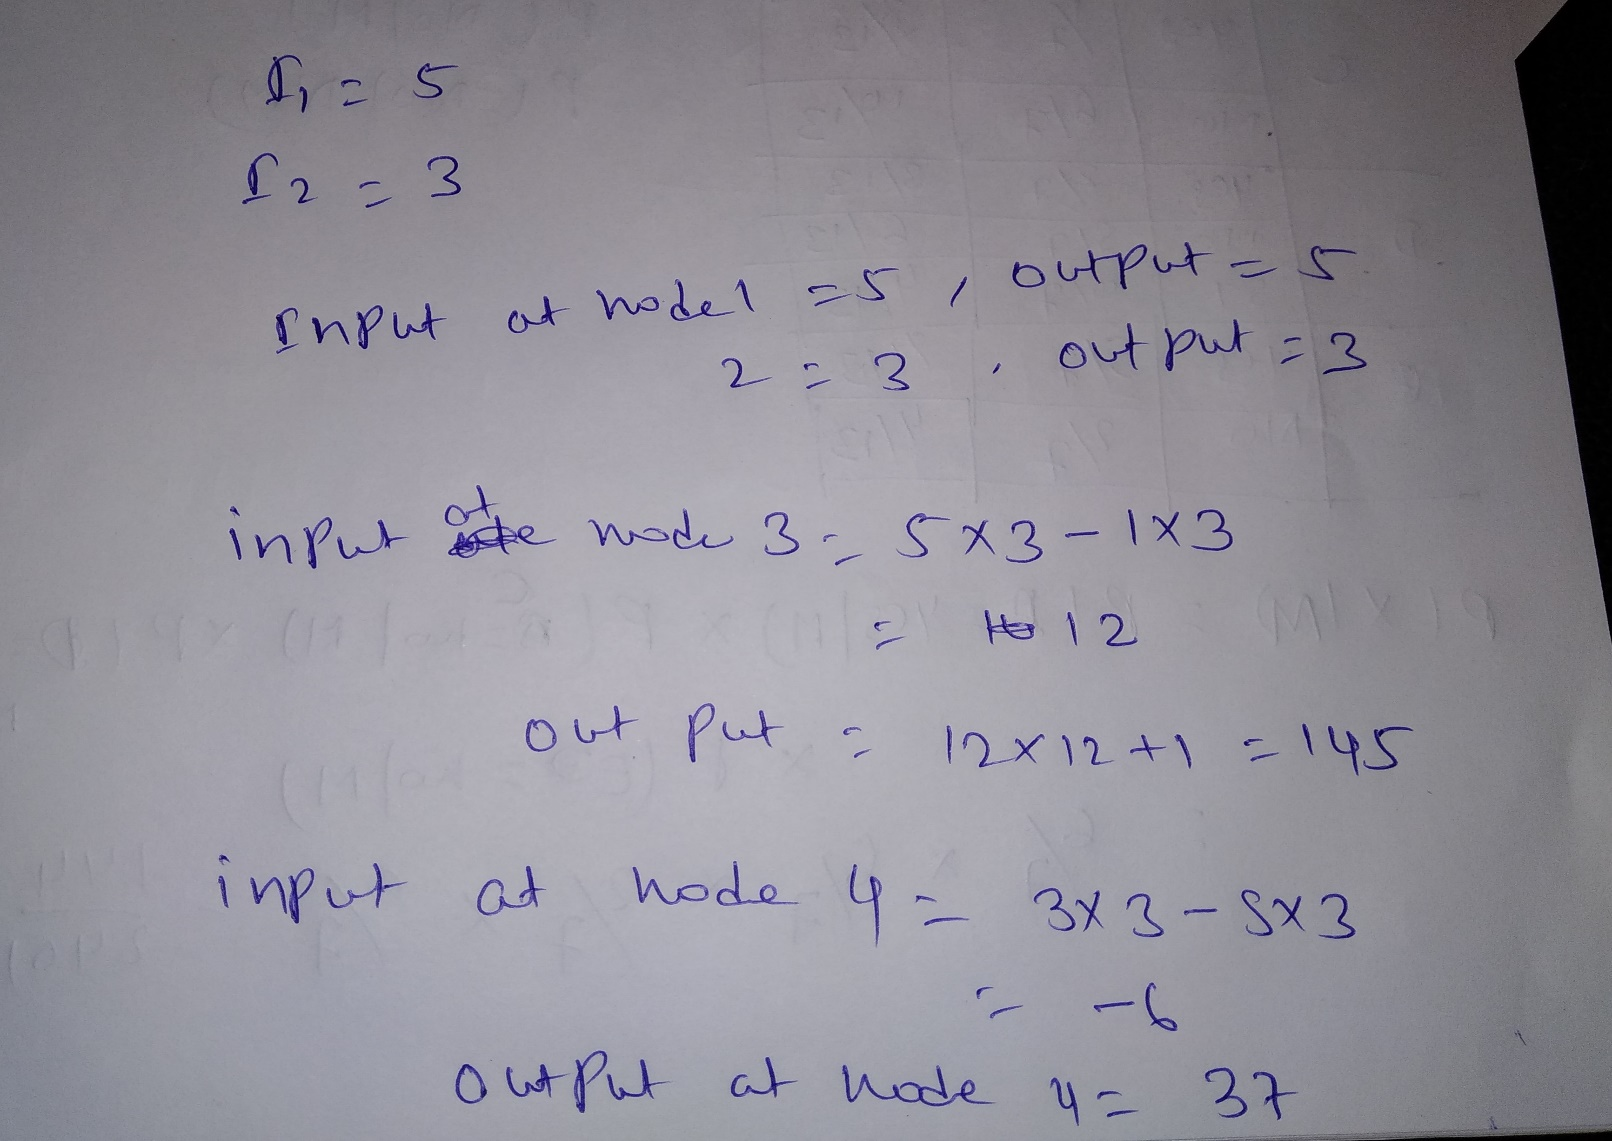 I1 = 5
I2 = 3
Input at node 1 = 5, output = 5
2 = 3, output = 3
input at node 3 = 5×3 - 1×3
= 12
output = 12×12+1 = 145
input at node 4 = 3×3 - 5×3
= -6
output at node 4 = 37